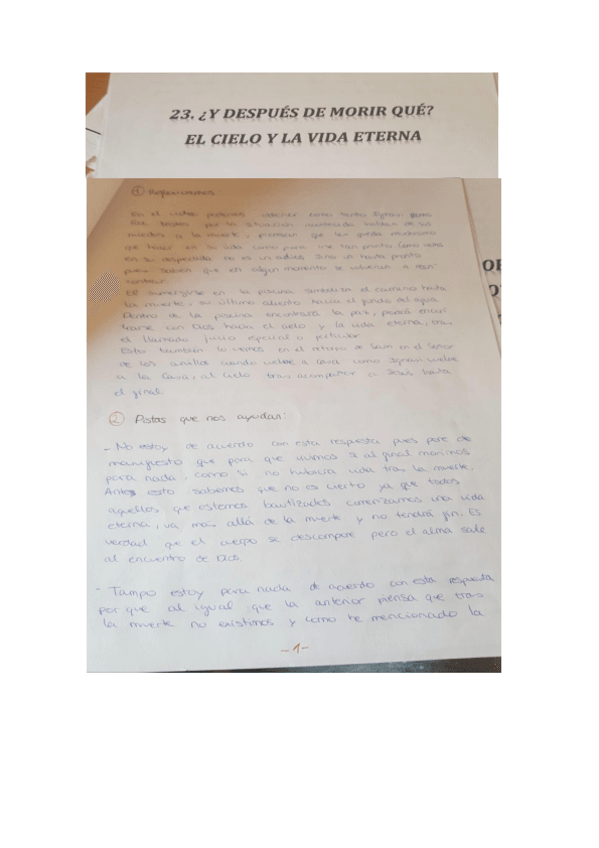 23. ¿Y DESPUÉS DE MORIR QUÉ?
EL CIELO Y LA VIDA ETERNA
① Reflexionamos
En el video podemos obtener como tanto
por la situación hablan de sus
miedos a la muerte, piensan que les queda muchísimo
que hacer en su vida como para irse tan pronto. Como vemos
en su despedida no es un adiós sino un hasta pronto
pues saben que en algún momento se volverán a
contrar.
El sumergirse en la piscina simboliza el camino hasta
la muerte, su último aliento hacia el fondo del agua.
Dentro de la piscina encontrará la paz, podrá encon
trarse con Dios hacia el cielo y la vida eterna, tras
el llamado juicio especial o particular.
Esto también lo vemos en el retorno de Sam en el Señor
de los anillos cuando vuelve a casa como vuelve
a la Casa, al Cielo tras acompañar a hasta
el final.
② Pistas que nos ayudan:
- No estoy de acuerdo con esta respuesta pues pone de
manifiesto que para que vivimos si al final morimos
para nada, como si no hubiera vida tras la muerte.
Ante esto sabemos que no es cierto ya que todos
aquellos que estemos bautizados comenzamos una vida
eterna, va más allá de la muerte y no tendrá fin. Es
verdad que el cuerpo se descompone pero el alma sale
al encuentro de Dios.
- Tampo estoy para nada de acuerdo con esta respuesta
por que al igual que la anterior piensa que tras
la muerte no existimos y como he mencionado la
-1-